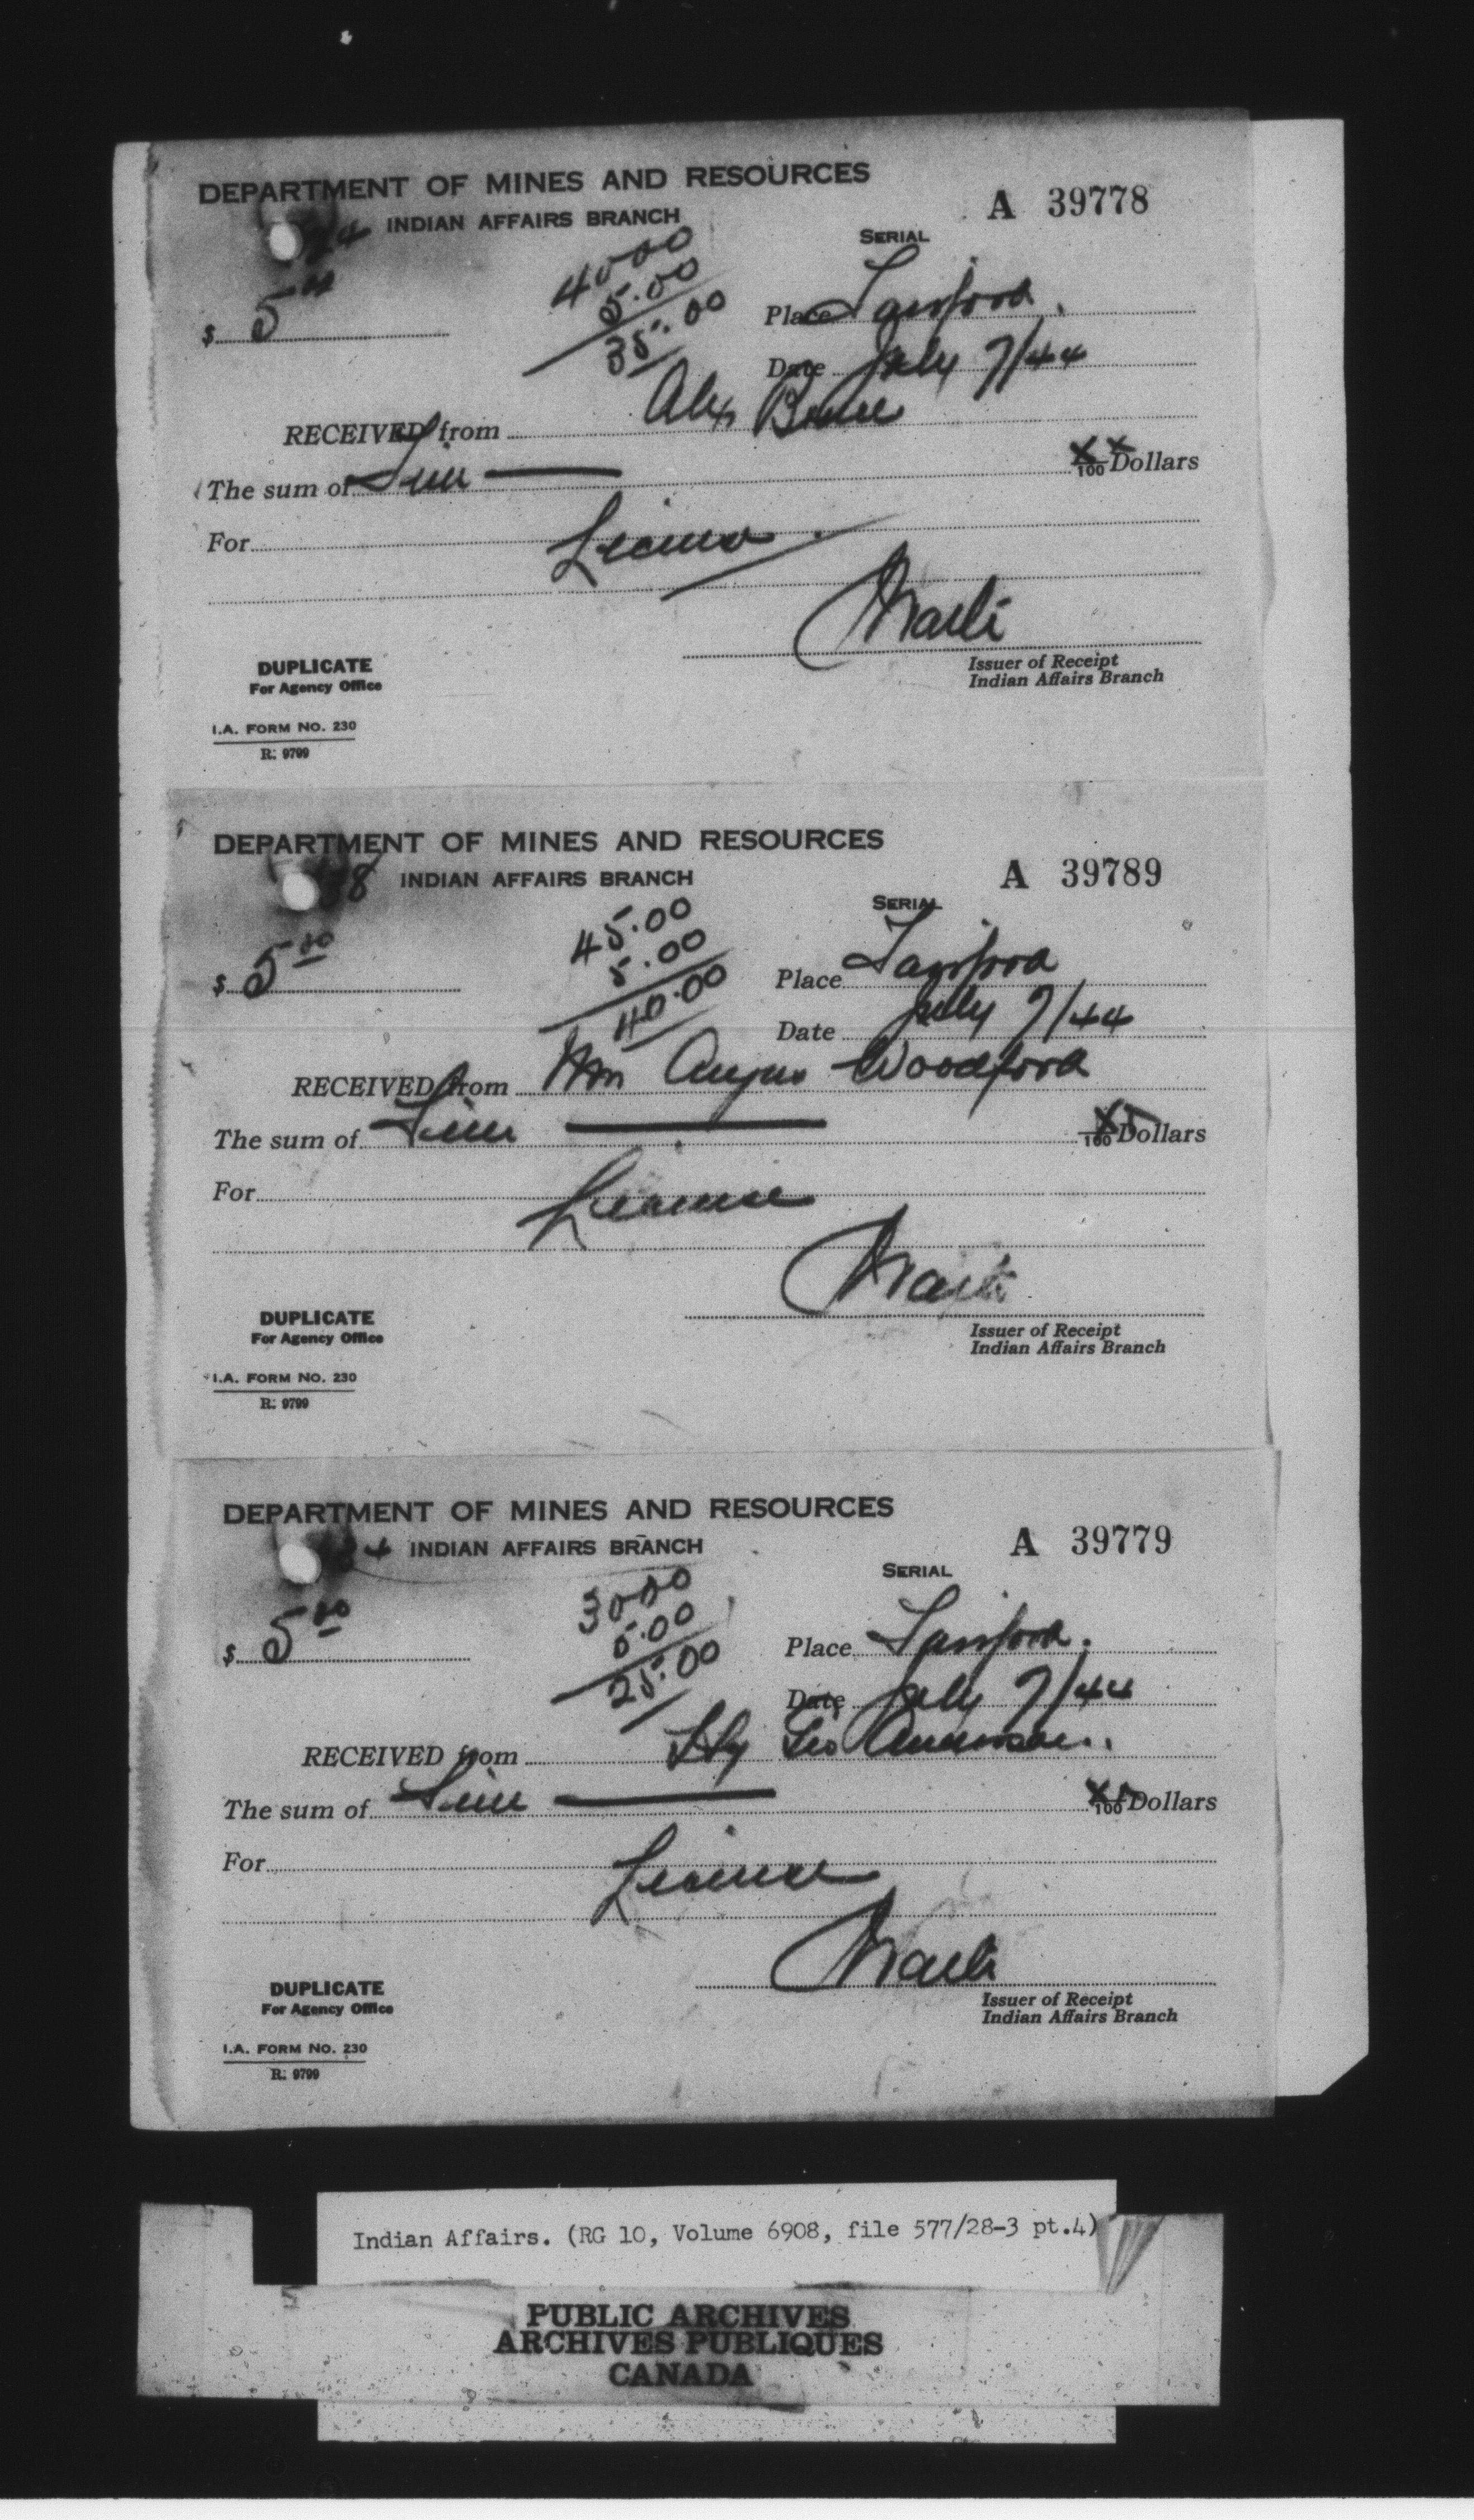 DEPARTMENT OF MINES AND RESOURCES
INDIAN AFFAIRS BRANCH
A 39778
SERIAL
40.00
5.00
35.00
$ 5.00
Place
Date July 7/44
RECEIVED from Alex
The sum of Five XX/100 Dollars
For License
Issuer of Receipt
Indian Affairs Branch
DUPLICATE
For Agency Office
I.A. FORM NO. 230
R. 9799
DEPARTMENT OF MINES AND RESOURCES
INDIAN AFFAIRS BRANCH
A 39789
SERIAL
45.00
5.00
40.00
$ 5.00
Place
Date July 7/44
RECEIVED from Wm Angus Woodford
The sum of Five XX/100 Dollars
For License
Issuer of Receipt
Indian Affairs Branch
DUPLICATE
For Agency Office
I.A. FORM NO. 230
R. 9799
DEPARTMENT OF MINES AND RESOURCES
INDIAN AFFAIRS BRANCH
A 39779
SERIAL
30.00
5.00
25.00
$ 5.00
Place
Date July 7/44
RECEIVED from Hy Geo
The sum of Five XX/100 Dollars
For License
Issuer of Receipt
Indian Affairs Branch
DUPLICATE
For Agency Office
I.A. FORM NO. 230
R. 9799
Indian Affairs. (RG 10, Volume 6908, file 577/28-3 pt.4)
PUBLIC ARCHIVES
ARCHIVES PUBLIQUES
CANADA